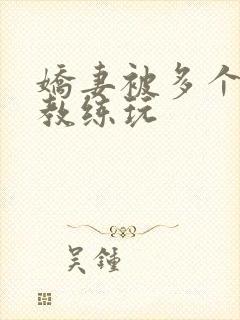 嬌妻被多个
教练玩
吴鍾